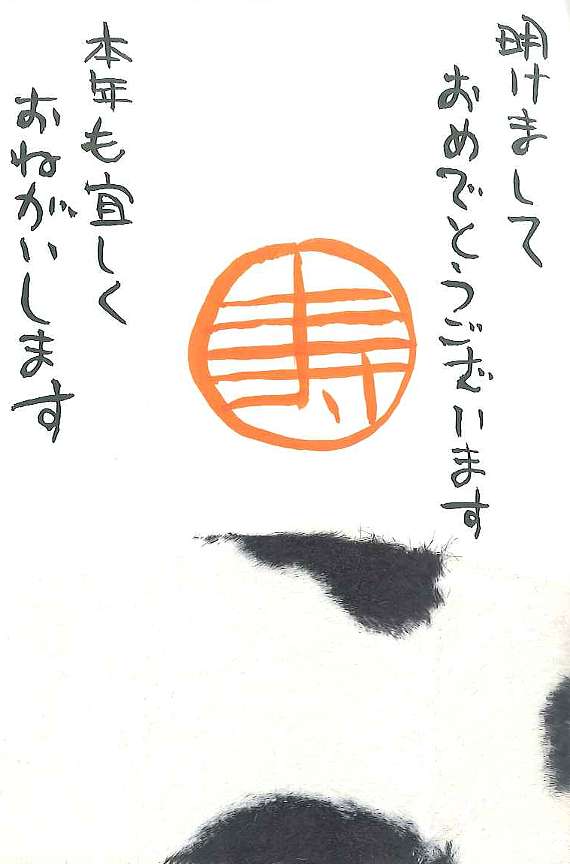 明けまして
おめでとうございます
寿
本年も宜しく
おねがいします